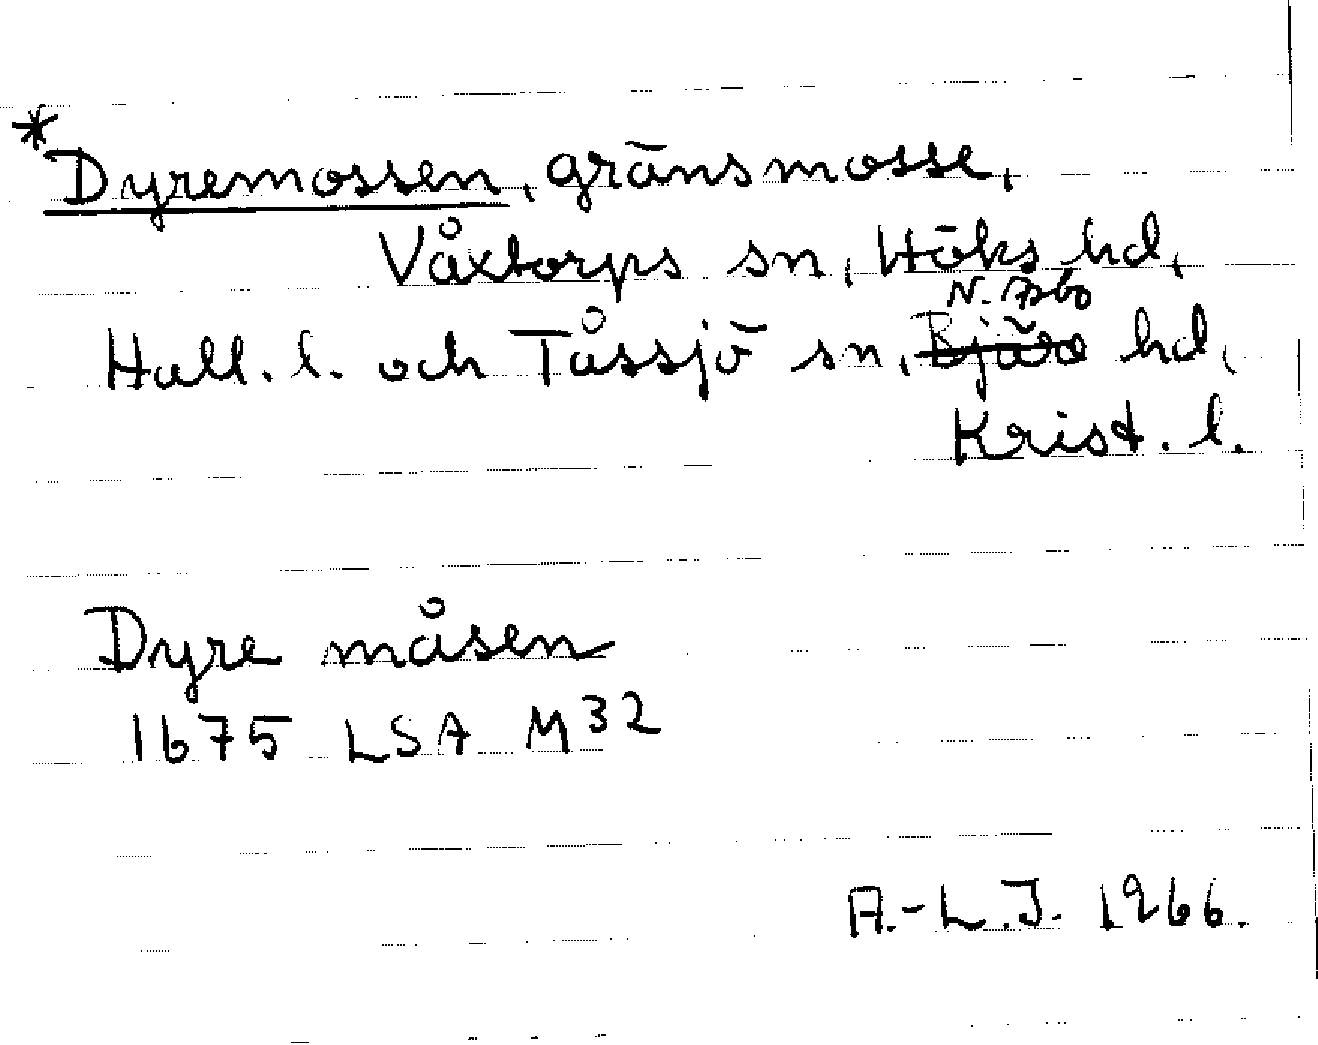 *Dyremossen, gränsmosse,
Våxtorps sn, Höks hd,
N. Åsbo
Hall. l. och Tåssjö sn, Bjäre hd,
Krist. l.
Dyre måsen
1675 LSA M32
A.-L.J. 1966.